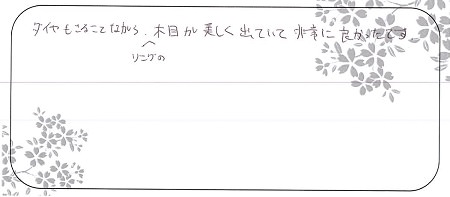 ダイヤもさることながら、木目が美しく出ていて非常に良かったです
リングの